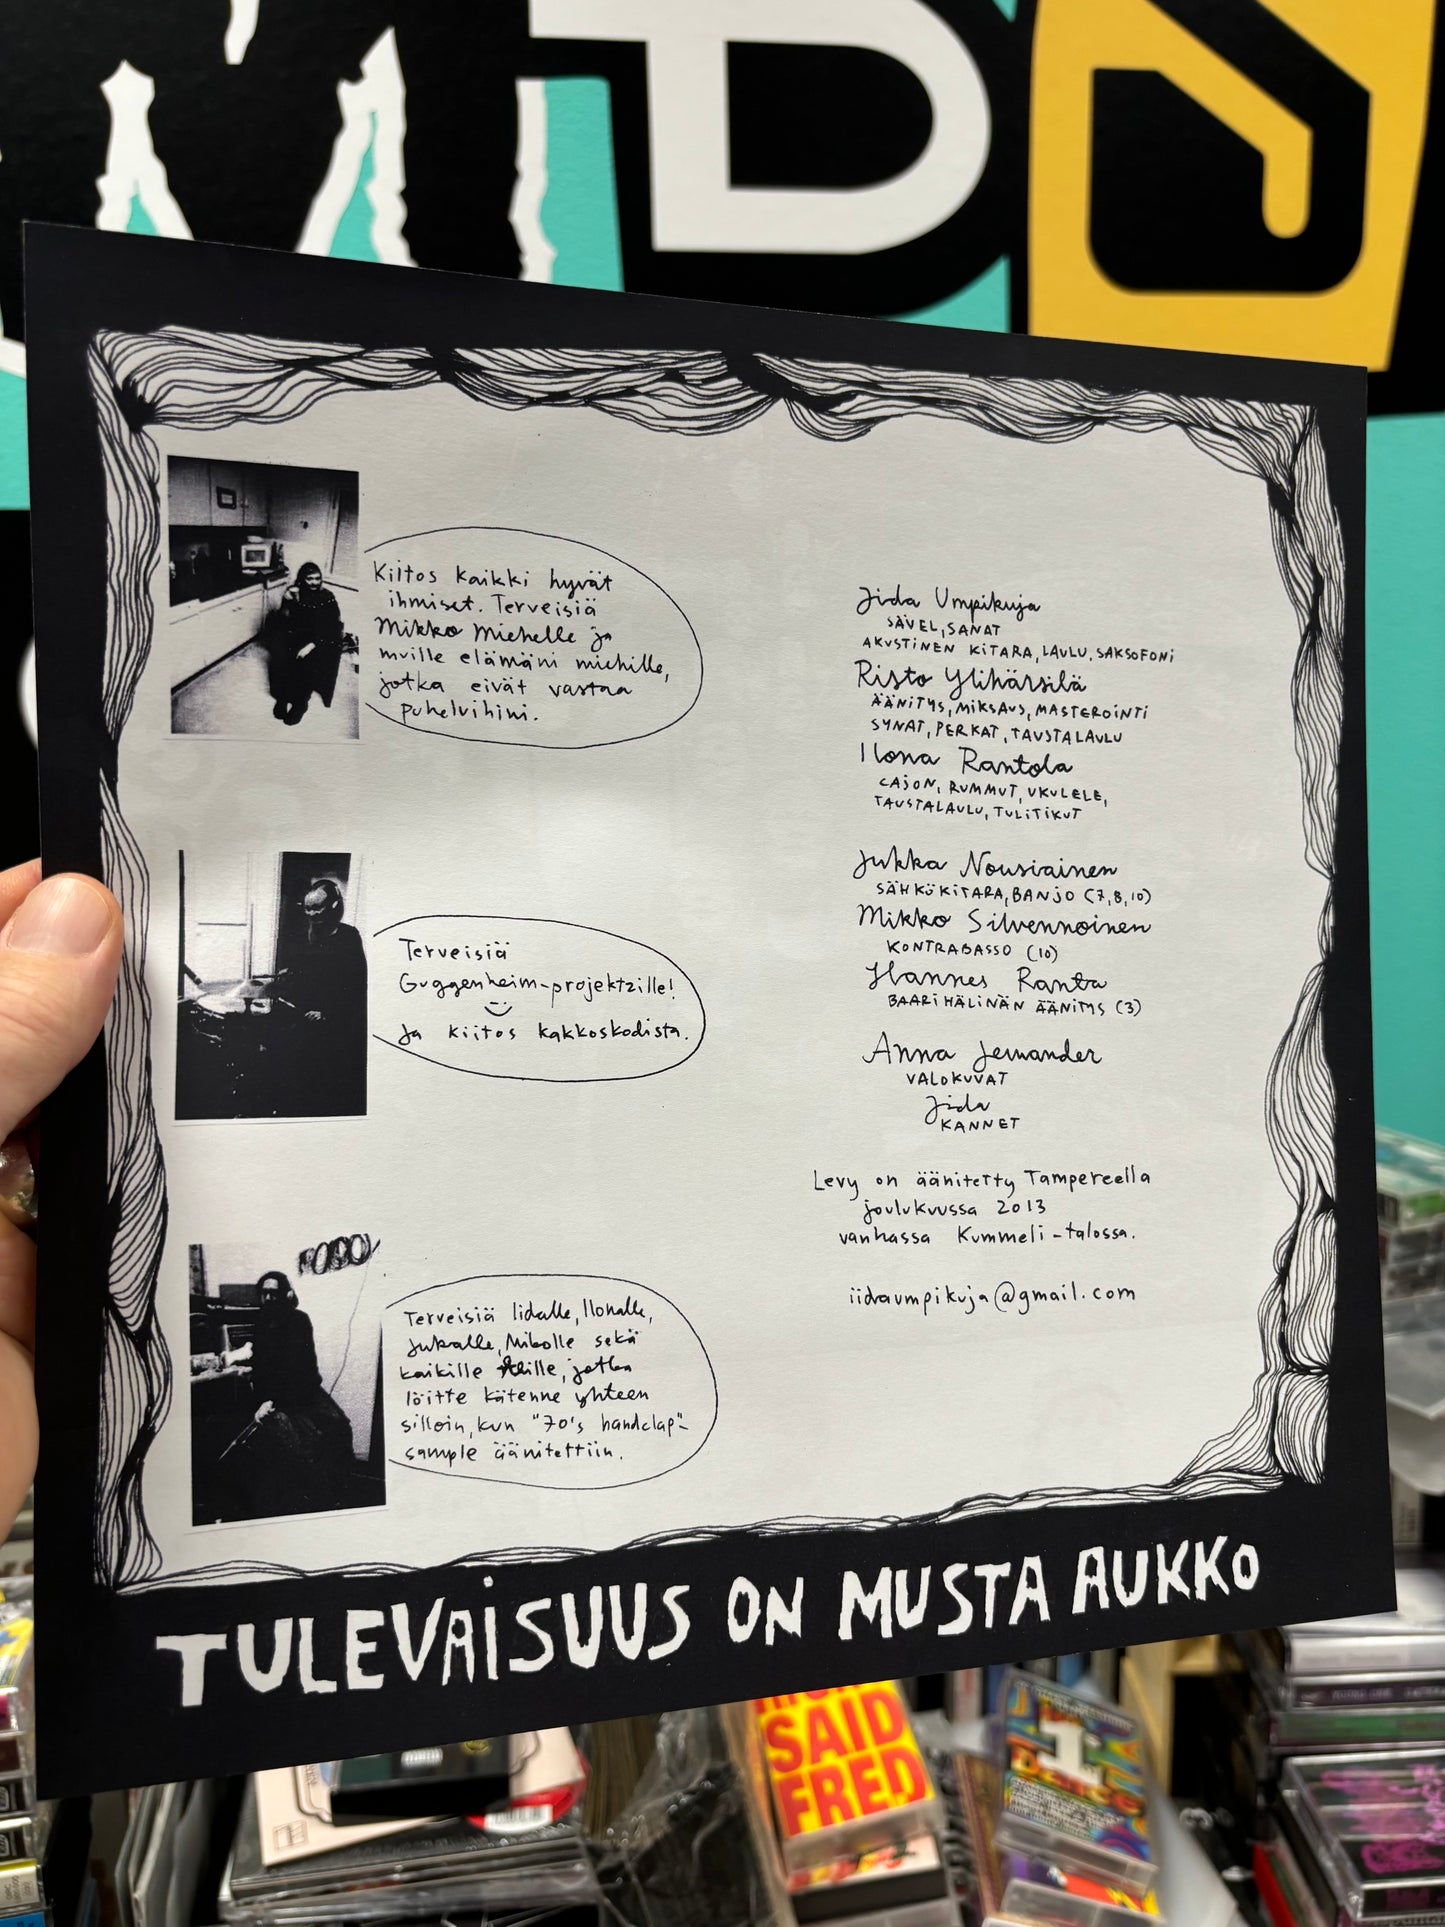 Kiitos kaikki hyvät
ihmiset. Terveisiä
Mikko Miehelle ja
muille elämäni miehille,
jotka eivät vastaa
puhelvihini.
Terveisiä
Guggenheim-projektille!
ja kiitos kakkoskodista.
Terveisiä Iidalle, Ilonalle,
Jukalle, Mikolle sekä
kaikille , jotka
löitte kätenne yhteen
silloin, kun "70's handclap"-
sample äänitettiin.
Iida Umpikuja
SÄVEL, SANAT
AKUSTINEN KITARA, LAULU, SAKSOFONI
Risto Ylihärsilä
ÄÄNITYS, MIKSAUS, MASTEROINTI
SYNAT, PERKAT, TAUSTALAULU
Ilona Rantola
CAJON, RUMMUT, UKULELE,
TAUSTALAULU, TULITIKUT
Jukka Nousiainen
SÄHKÖKITARA, BANJO (7, 8, 10)
Mikko Silvennoinen
KONTRABASSO (10)
Hannes Ranta
BAARIHÄLINÄN ÄÄNITYS (3)
Anna Jernander
VALOKUVAT
Iida
KANNET
Levy on äänitetty Tampereella
joulukuussa 2013
vanhassa Kummeli-talossa.
iidaumpikuja@gmail.com
TULEVAISUUS ON MUSTA AUKKO
SAID
FRED